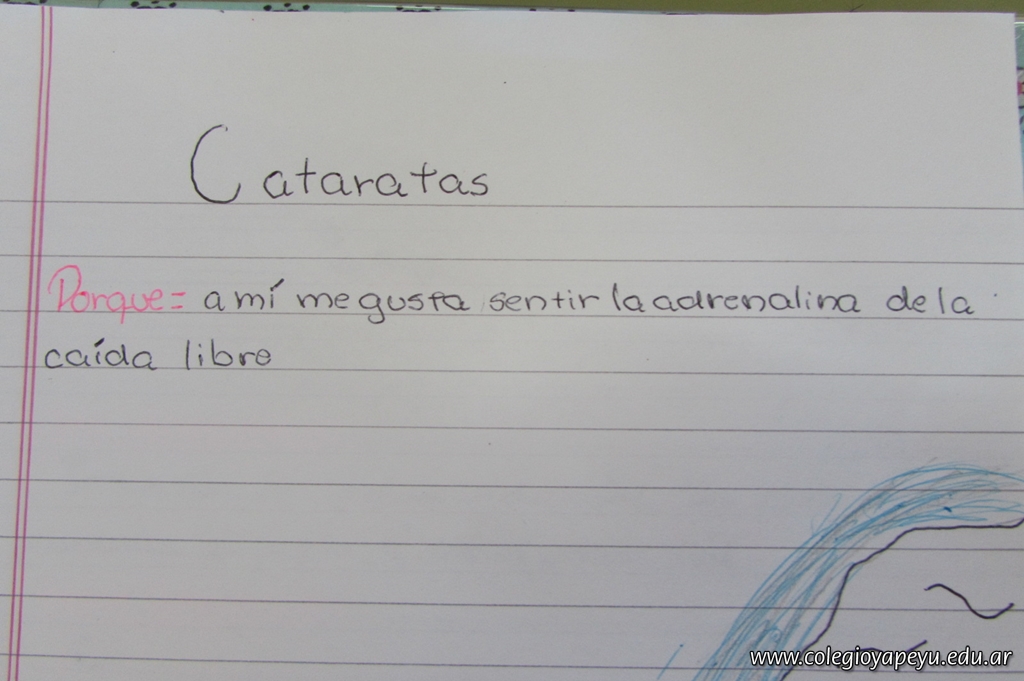 Cataratas
Porque= a mí me gusta sentir la adrenalina de la
caída libre
www.colegioyapeyu.edu.ar